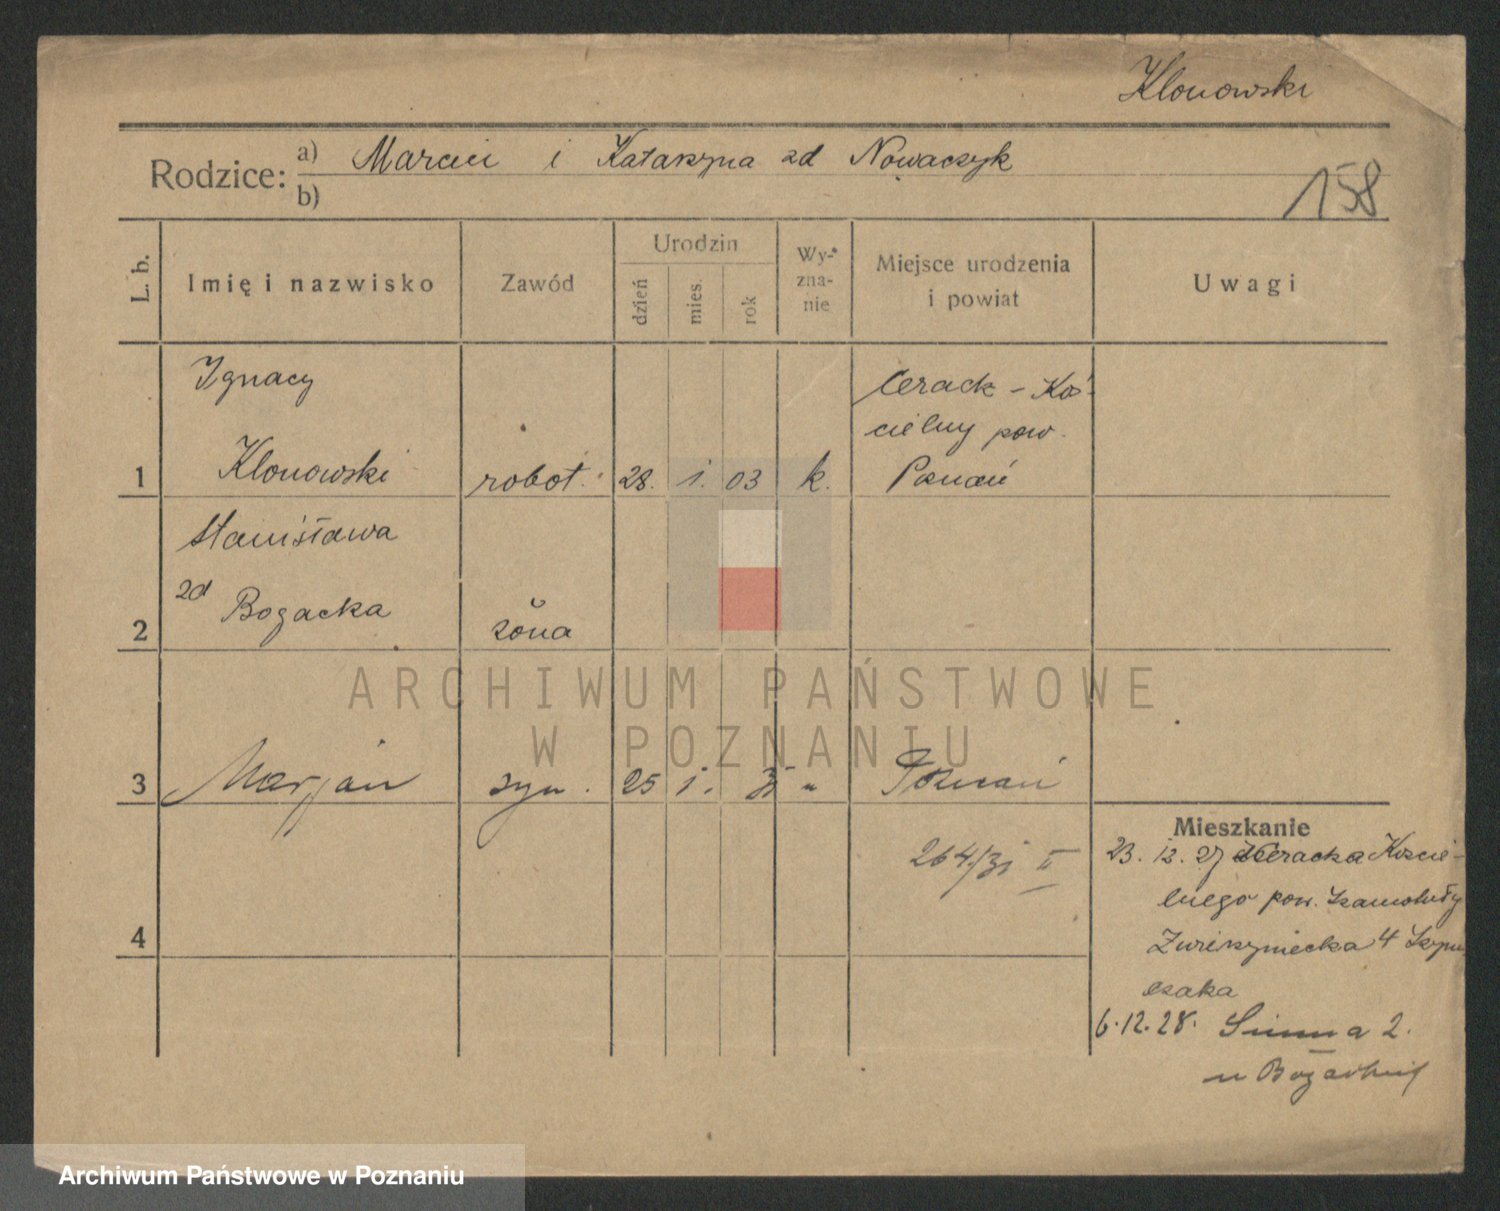 Klonowski
Rodzice: a) Marcin i Katarzyna zd Nowaczyk
b)
158
L. b.
Imię i nazwisko
Zawód
Urodzin
dzień
mies.
rok
Wy-
zna-
nie
Miejsce urodzenia
i powiat
Uwagi
Ignacy
Cerack - Koś-
cielny pow.
1 Klonowski robot. 28. i. 03 k. Poznań
Stanisława
zd Bogacka
2 żona
ARCHIWUM PAŃSTWOWE
W POZNANIU
3 Marjan syn. 25 i. 31 " Poznań
264/31 II
4
Mieszkanie
23. 12. 27 Ceracka Koście-
lnego pow. Szamotuły
Zwierzyniecka 4 Szym
czaka
6.12.28. 2.
u
Archiwum Państwowe w Poznaniu